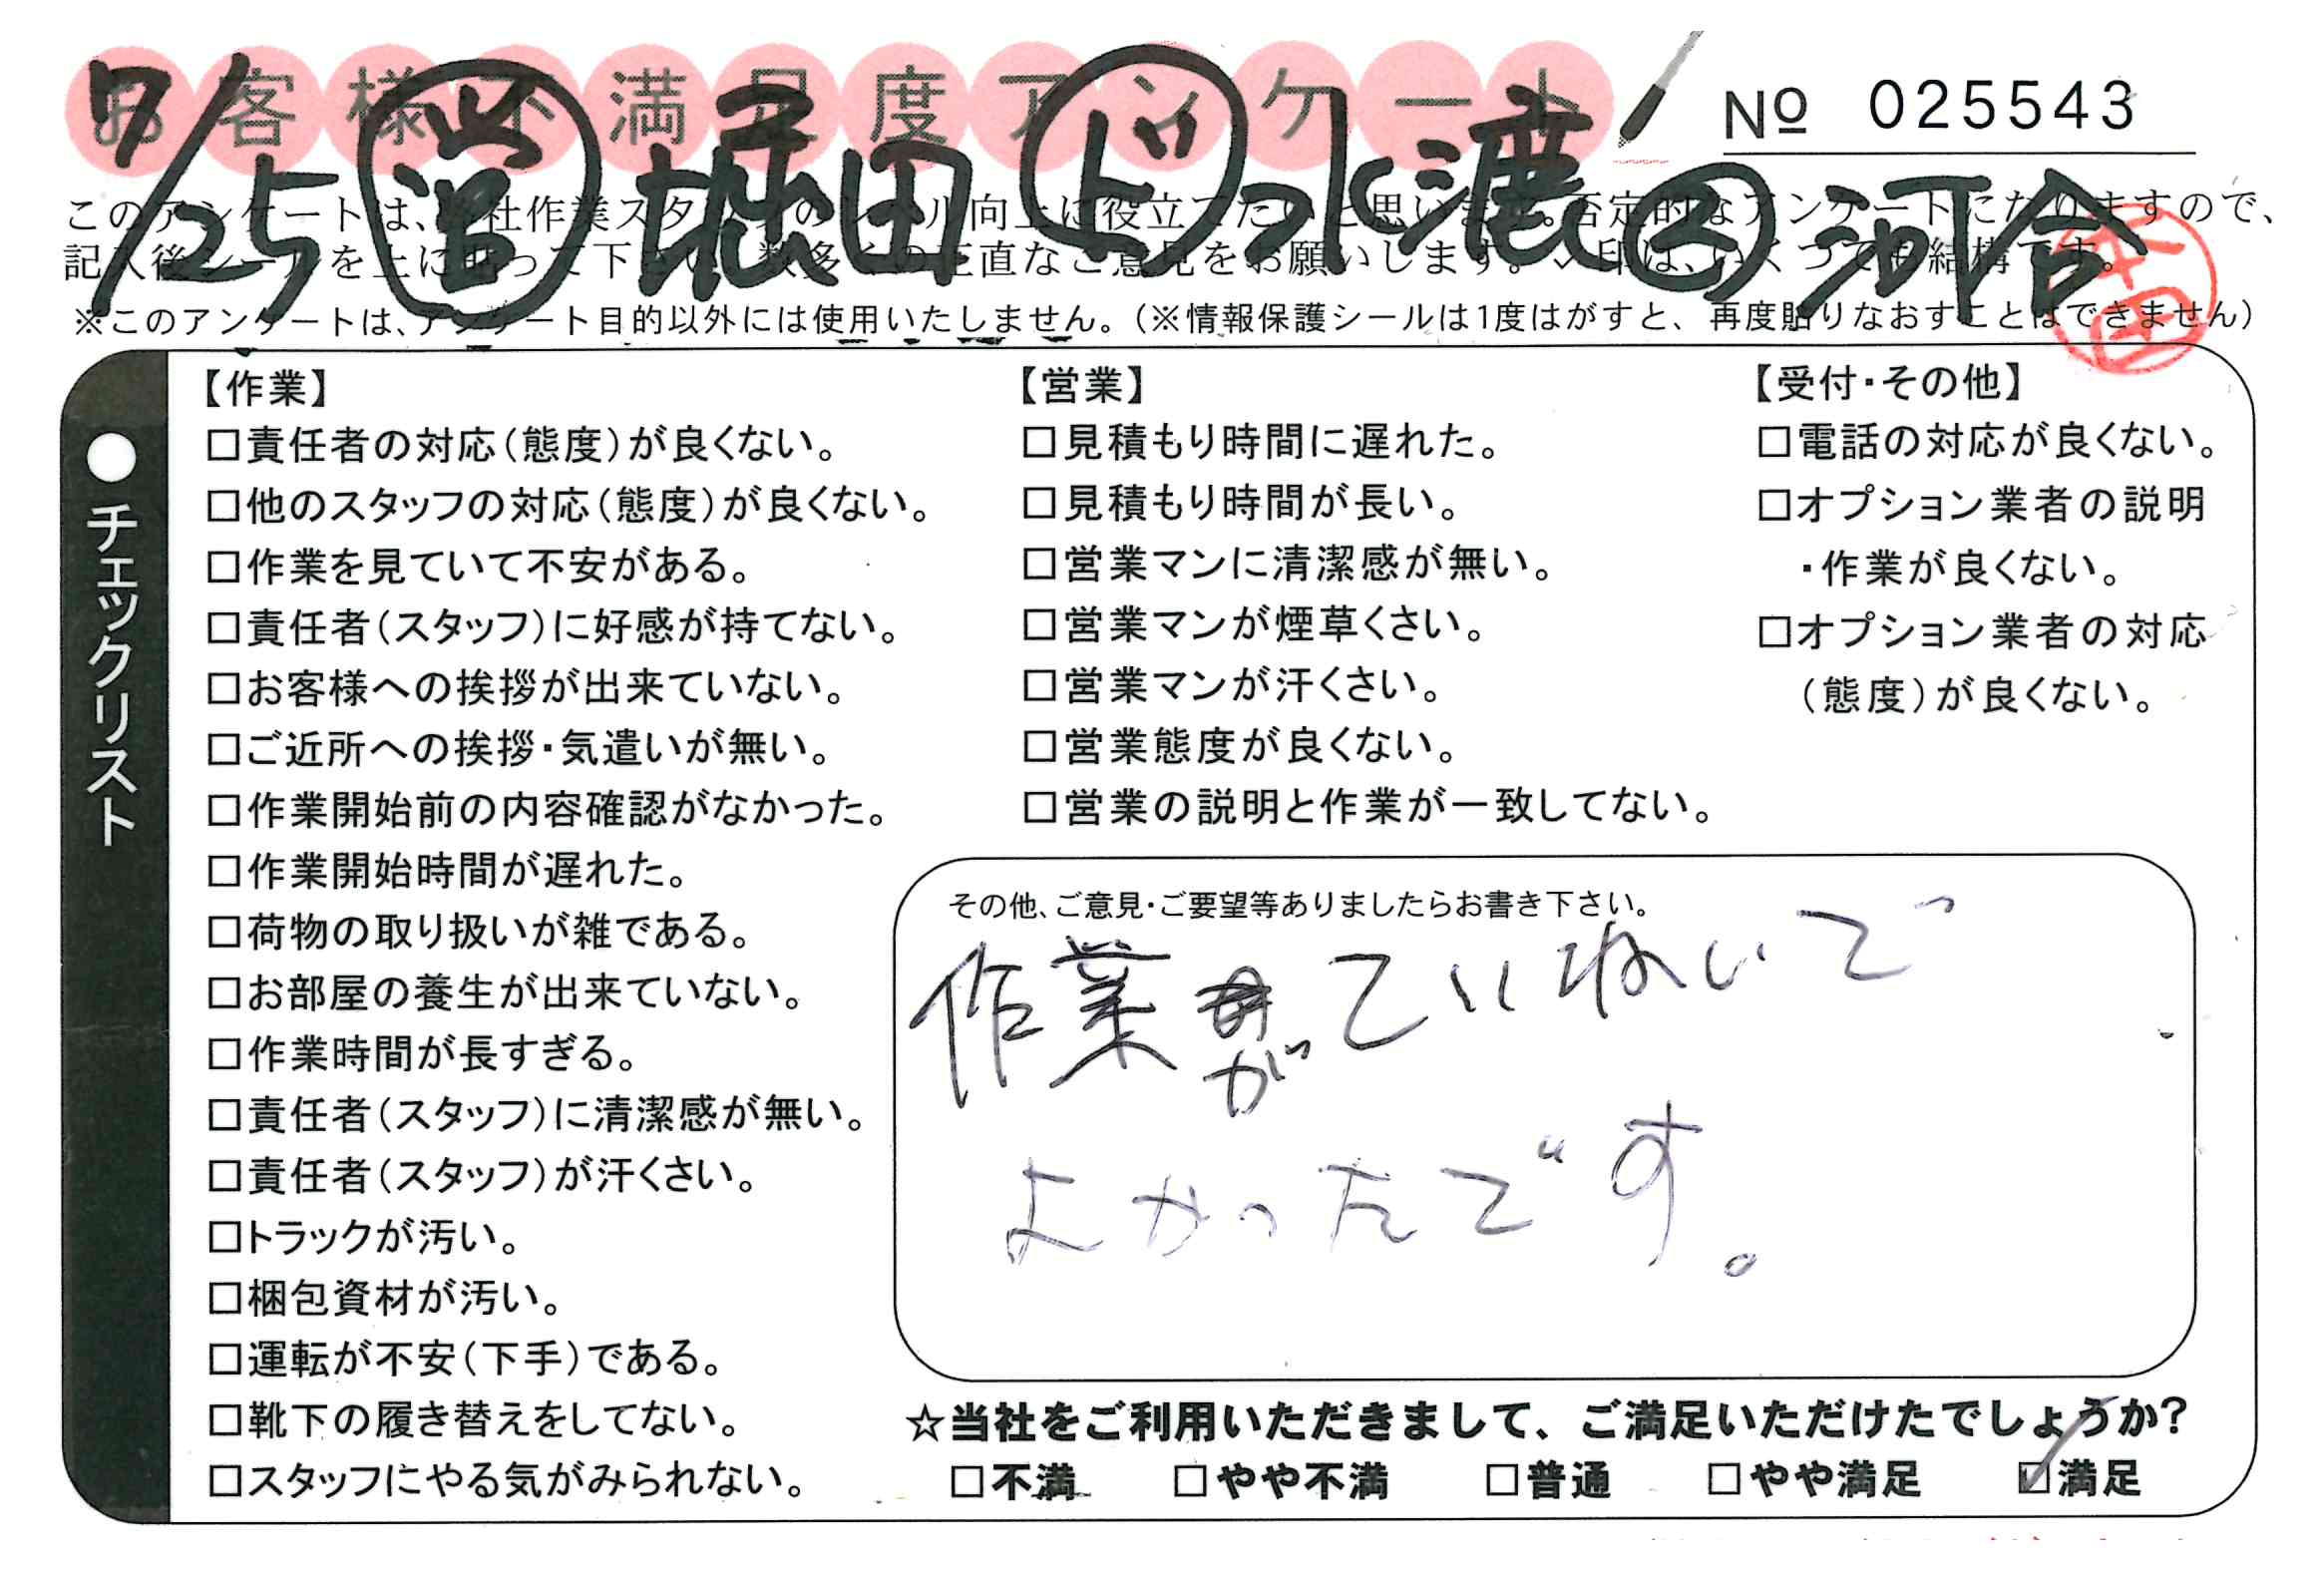 お客様不満足度アンケート
№ 025543
7/25 営 堀田 ド 水漉 ② 河合
このアンケートは、当社作業スタッフのレベル向上に役立てたいと思います。否定的なアンケートになりますので、
記入後シールを上に貼って下さい。数多くの正直なご意見をお願いします。✓印は、いくつでも結構です。
※このアンケートは、アンケート目的以外には使用いたしません。(※情報保護シールは1度はがすと、再度貼りなおすことはできません)
●チェックリスト
【作業】
□責任者の対応(態度)が良くない。
□他のスタッフの対応(態度)が良くない。
□作業を見ていて不安がある。
□責任者(スタッフ)に好感が持てない。
□お客様への挨拶が出来ていない。
□ご近所への挨拶・気遣いが無い。
□作業開始前の内容確認がなかった。
□作業開始時間が遅れた。
□荷物の取り扱いが雑である。
□お部屋の養生が出来ていない。
□作業時間が長すぎる。
□責任者(スタッフ)に清潔感が無い。
□責任者(スタッフ)が汗くさい。
□トラックが汚い。
□梱包資材が汚い。
□運転が不安(下手)である。
□靴下の履き替えをしてない。
□スタッフにやる気がみられない。
【営業】
□見積もり時間に遅れた。
□見積もり時間が長い。
□営業マンに清潔感が無い。
□営業マンが煙草くさい。
□営業マンが汗くさい。
□営業態度が良くない。
□営業の説明と作業が一致してない。
【受付・その他】
□電話の対応が良くない。
□オプション業者の説明
・作業が良くない。
□オプション業者の対応
(態度)が良くない。
その他、ご意見・ご要望等ありましたらお書き下さい。
作業がていねいで
よかったです。
☆当社をご利用いただきまして、ご満足いただけたでしょうか?
□不満 □やや不満 □普通 □やや満足 ☑満足